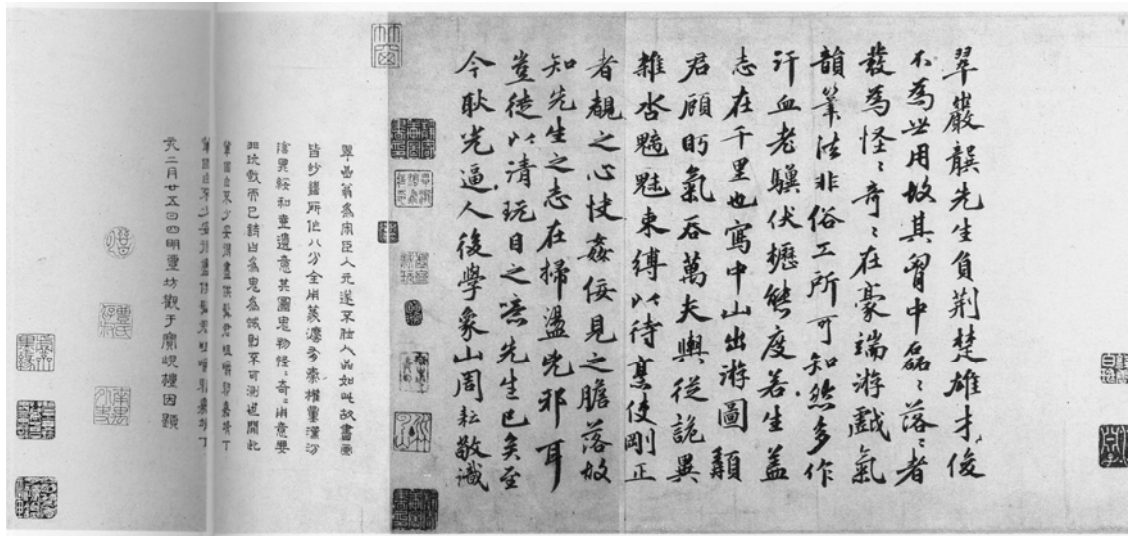 翠巖龔先生負荊楚雄才俊
不為世用故其胷中磊〻落〻者
發為怪〻奇〻在豪端游戲氣
韻筆法非俗工所可知然多作
汗血老驥伏櫪態度若生蓋
志在千里也寫中山出游圖髯
君顧眄氣吞萬夫輿從詭異
雜沓魑魅束縛以待烹使剛正
者覩之心快姦佞見之膽落故
知先生之志在掃盪兇邪耳
豈徒以清玩目之噫先生已矣至
今耿光逼人後學象山周耘敬識
翠嵓翁為宋臣入元遂不仕人品如此故書畫
皆妙所作八分全用篆灋參秦權量漢汾
陰綏和壺遺意其圖鬼物怪〻奇〻用意要
非玩戲而已詩曰為鬼為蜮則不可測世間此
輩固自不少安得盡使髯君咀嚼丁
亥二月廿五日四明豐坊觀于寶峴樓因題